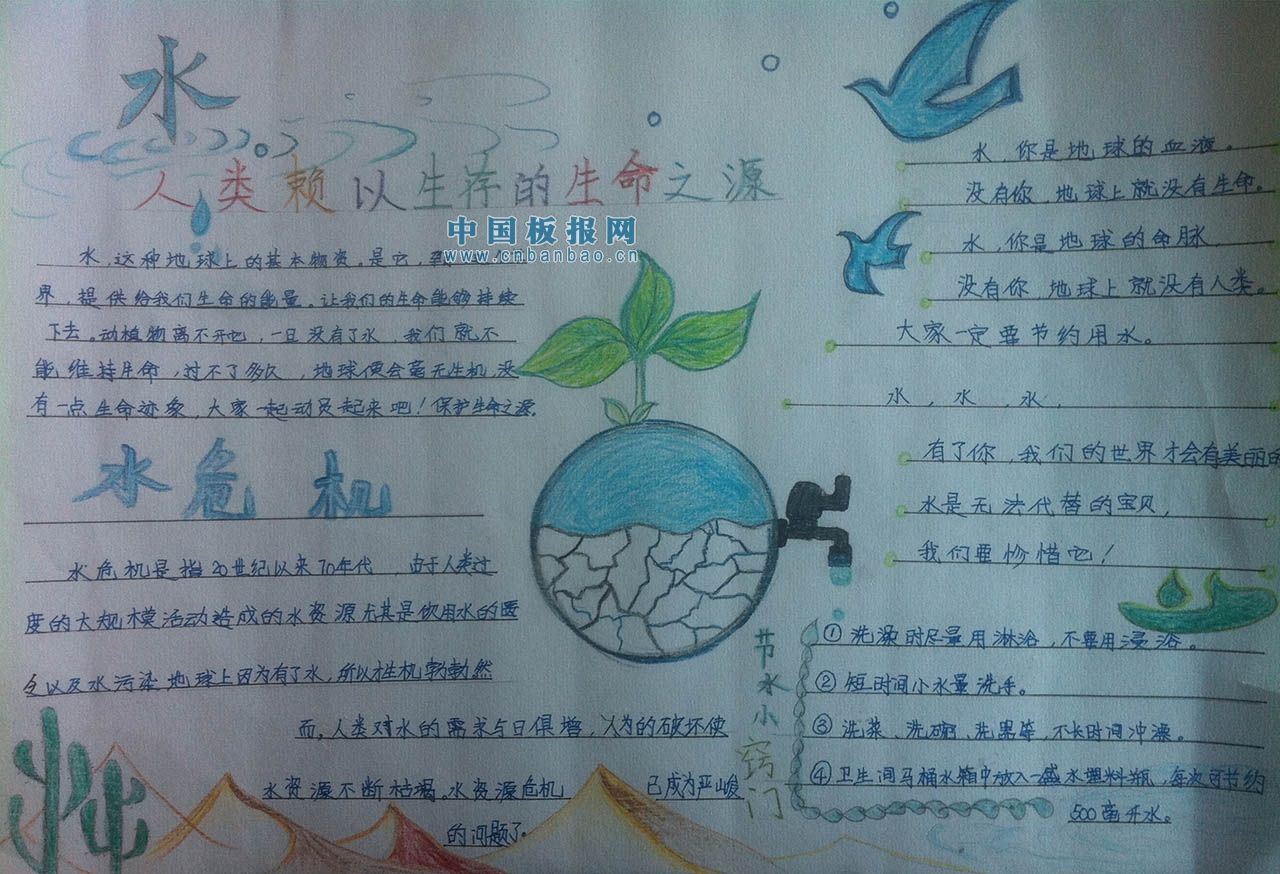 水
人类赖以生存的生命之源
中国板报网
www.cnbanbao.cn
水,这种地球上的基本物资。是它,
界,提供给我们生命的能量。让我们的生命能够持续
下去。动植物离不开它,一旦没有了水,我们就不
能维持生命,过不了多久,地球便会毫无生机,没
有一点生命迹象,大家一起动员起来吧!保护生命之源。
水危机
水危机是指20世纪以来70年代,由于人类过
度的大规模活动造成的水资源尤其是饮用水的匮
乏以及水污染,地球上因为有了水,所以才生机勃勃,然
而,人类对水的需求与日俱增,人为的破坏使
水资源不断枯竭。水资源危机 已成为严峻
的问题了。
水,你是地球的血液。
没有你,地球上就没有生命。
水,你是地球的命脉
没有你,地球上就没有人类。
大家一定要节约用水。
水,水,水,
有了你,我们的世界才会有美丽的
水是无法代替的宝贝,
我们要惜它!
节水小窍门
①洗澡时尽量用淋浴,不要用浸浴。
②短时间小水量洗手。
③洗菜、洗碗、洗果等,不长时间冲澡。
④卫生间马桶水箱中放入一盛水塑料瓶,每次可节约
500毫升水。